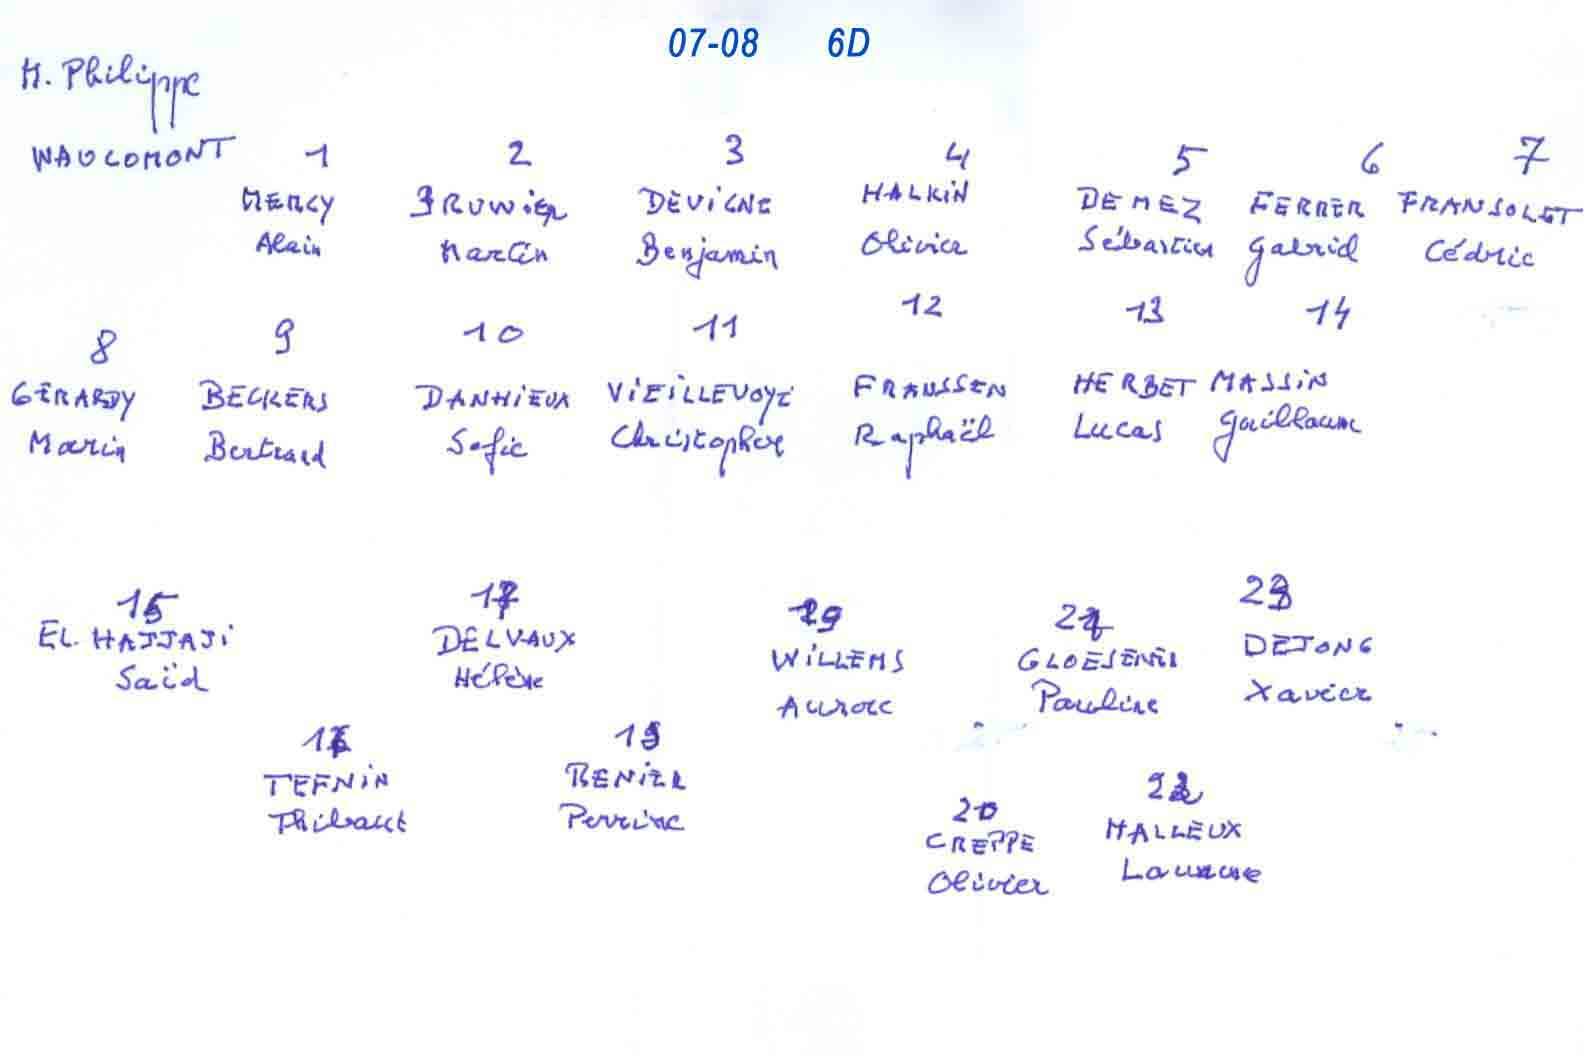 07-08 6D
M. Philippe
WAUCOMONT 1 2 3 4 5 6 7
MERCY BRUWIER DEVIGNE HALKIN DEMEZ FERRER FRANSOLET
Alain Martin Benjamin Olivier Sébastien Gabriel Cédric
8 9 10 11 12 13 14
GÉRARDY BECKERS DANHIEUX VIEILLEVOYE FRANSSEN HERBET MASSIN
Marin Bertrand Sofie Christopher Raphaël Lucas Guillaume
15 17 19 21 23
EL HAJJAJI DELVAUX WILLEMS GLOESENER DEJONG
Saïd Hélène Aurore Pauline Xavier
16 18
TEFNIN RENIER
Thibaut Perrine
20 22
CREPPE HALLEUX
Olivier